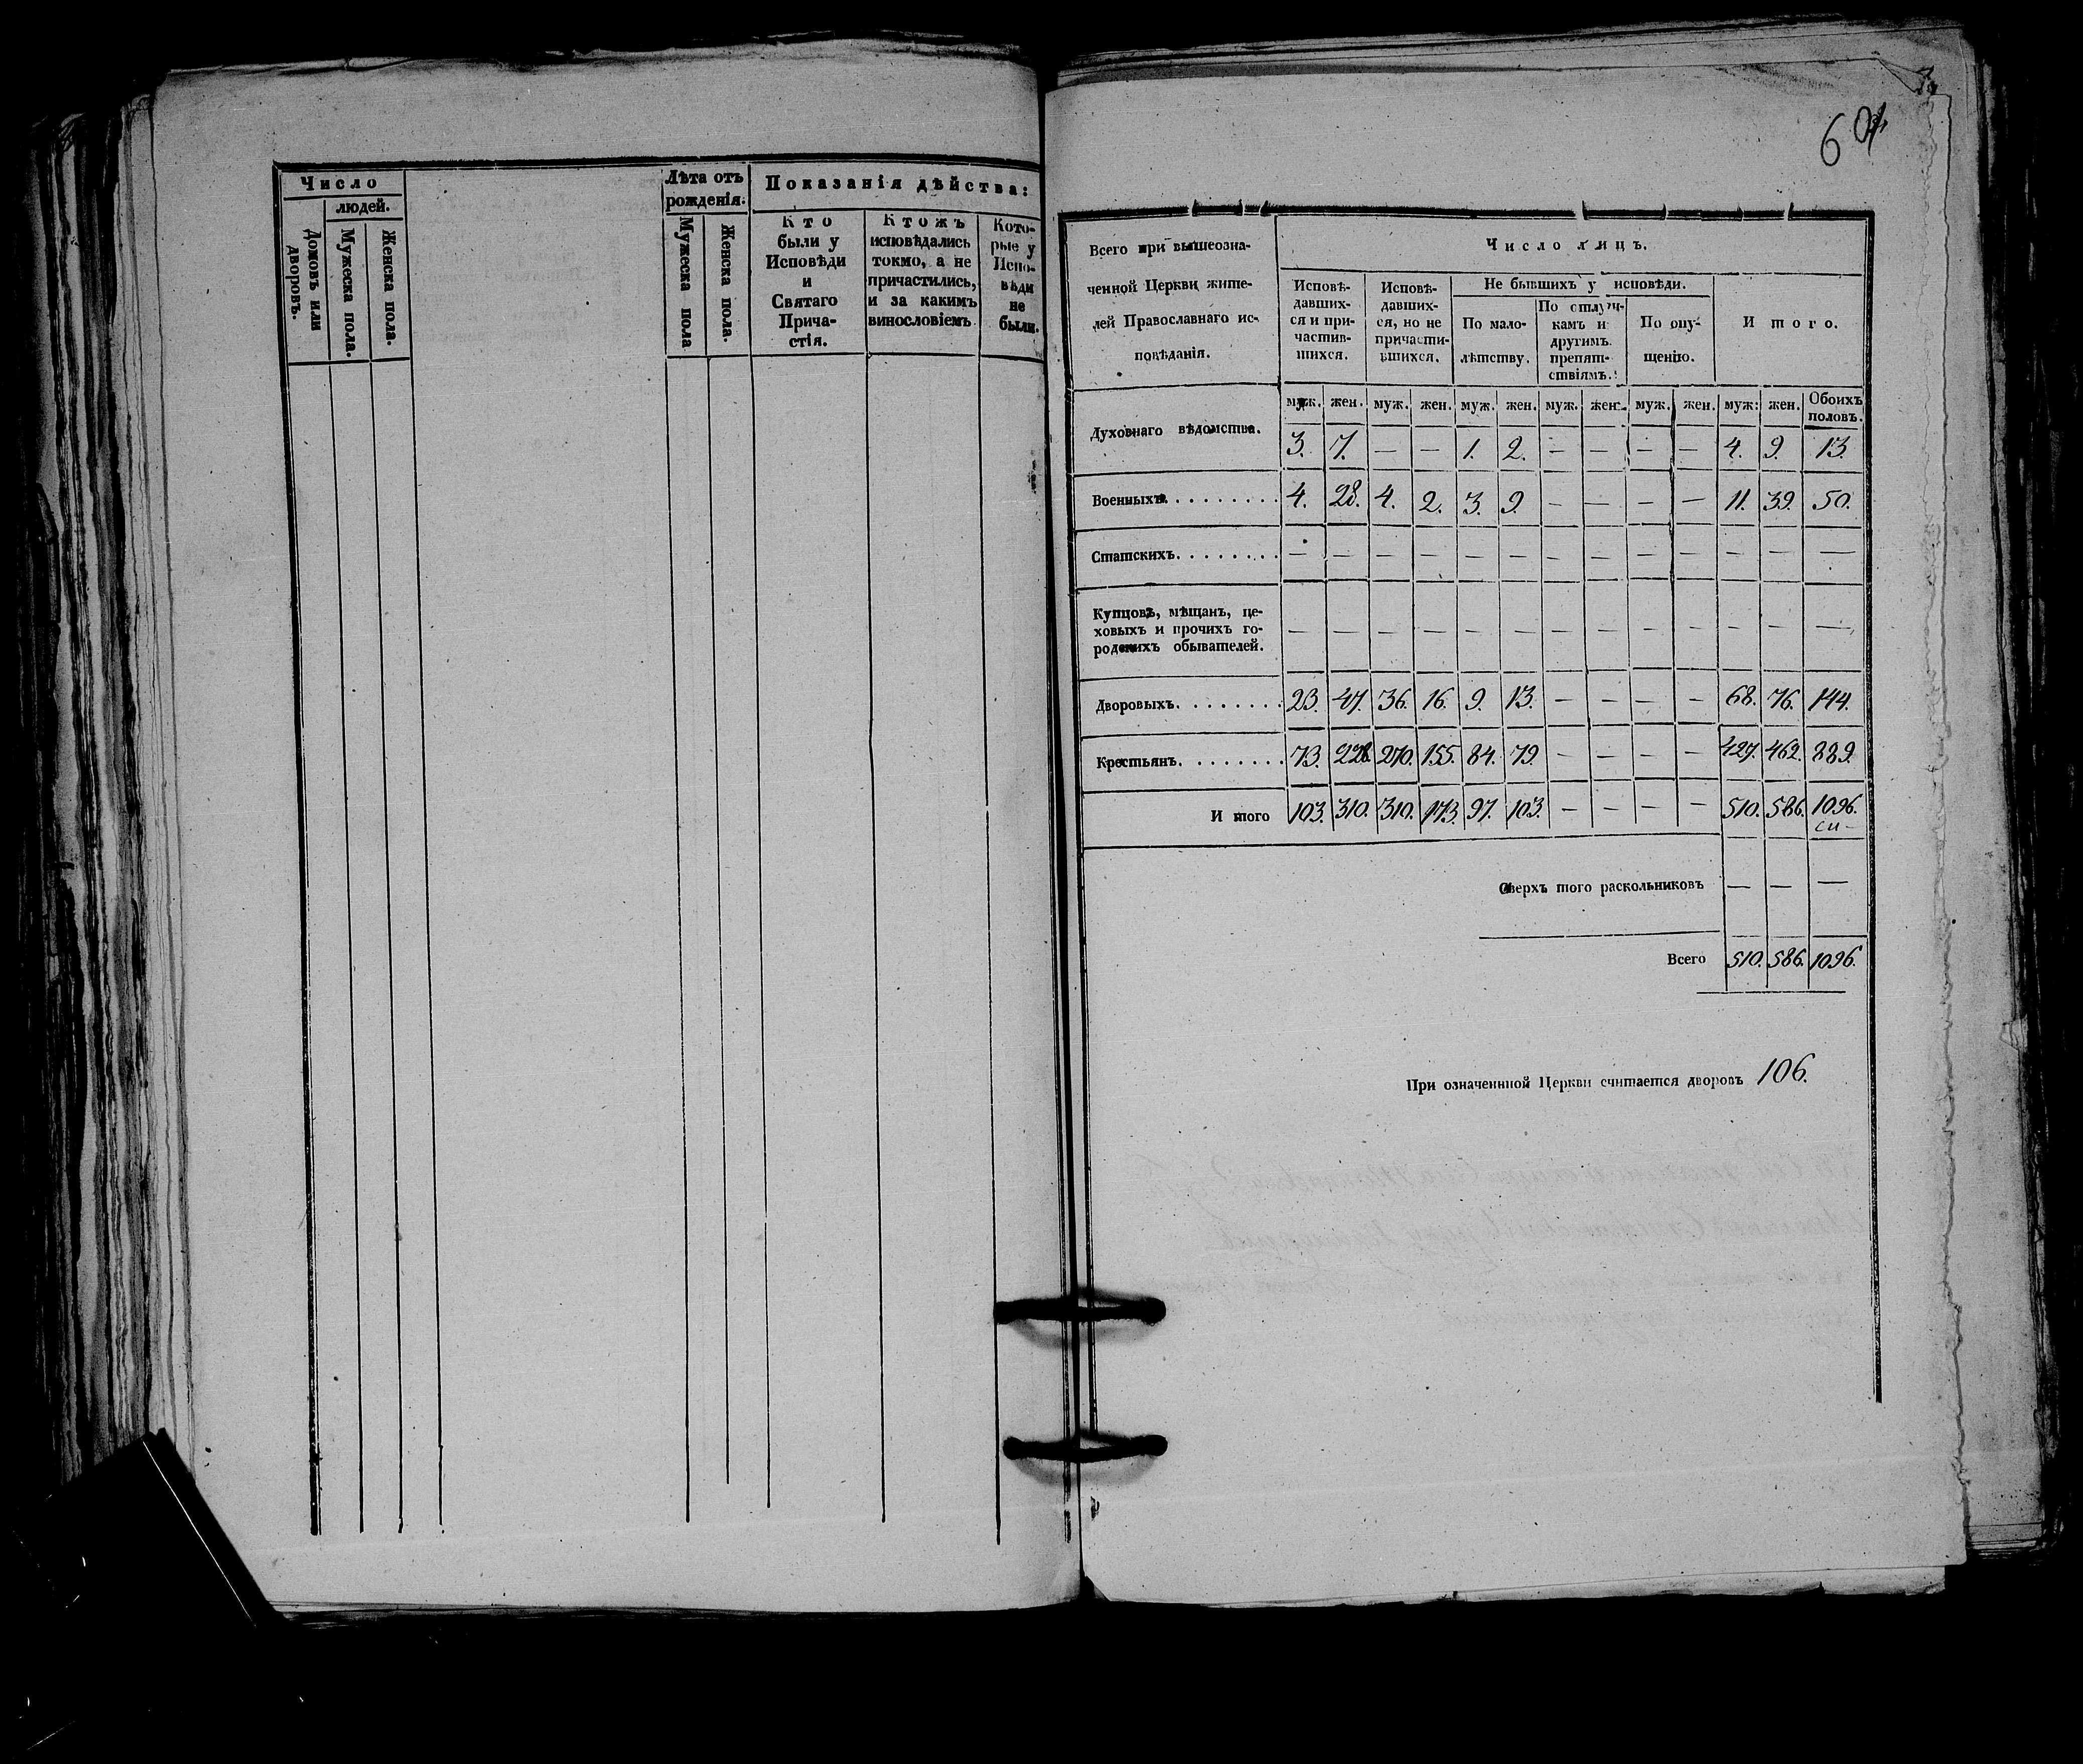 Число
людей.
Домовъ или дворовъ.
Мужеска пола.
Женска пола.
Лѣта отъ
рожденія.
Мужеска пола
Женска пола.
Показанія дѣйства:
Кто
были у
Исповѣди
и
Святаго
Прича-
стія.
Ктожъ
исповѣдались
токмо, а не
причастились,
и за какимъ
винословіемъ
Кото-
рые у
Испо-
вѣди
не
были.
Всего при вышеозна-
ченной Церкви жите-
лей Православнаго ис-
повѣданія.
Число лицъ.
Исповѣ-
давших-
ся и при-
частив-
шихся.
Исповѣ-
давших-
ся, но не
причасти-
вшихся.
Не бывшихъ у исповѣди.
По мало-
лѣтству.
По отлуч-
камъ и
другимъ
препят-
ствіямъ.
По опу-
щенію.
Итого.
муж. жен. муж. жен. муж. жен. муж. жен. муж. жен. муж: жен. Обоихъ
половъ.
Духовнаго вѣдомства. 3. 7. — — 1. 2. — — — — 4. 9. 13.
Военныхъ. . . . . . . . . 4. 28. 4. 2. 3. 9. — — — — 11. 39. 50.
Статскихъ. . . . . . . . — — — — — — — — — — — — —
Купцовъ, мѣщанъ, це-
ховыхъ и прочихъ го- — — — — — — — — — — — — —
родскихъ обывателей.
Дворовыхъ. . . . . . . . 23. 47. 36. 16. 9. 13. — — — — 68. 76. 144.
Крестьянъ. . . . . . . . 73. 228. 270. 155. 84. 79. — — — — 427. 462. 889.
И того 103. 310. 310. 173. 97. 103. — — — — 510. 586. 1096.
Сверхъ того раскольниковъ — — —
Всего 510. 586. 1096.
При означенной Церкви считается дворовъ 106.